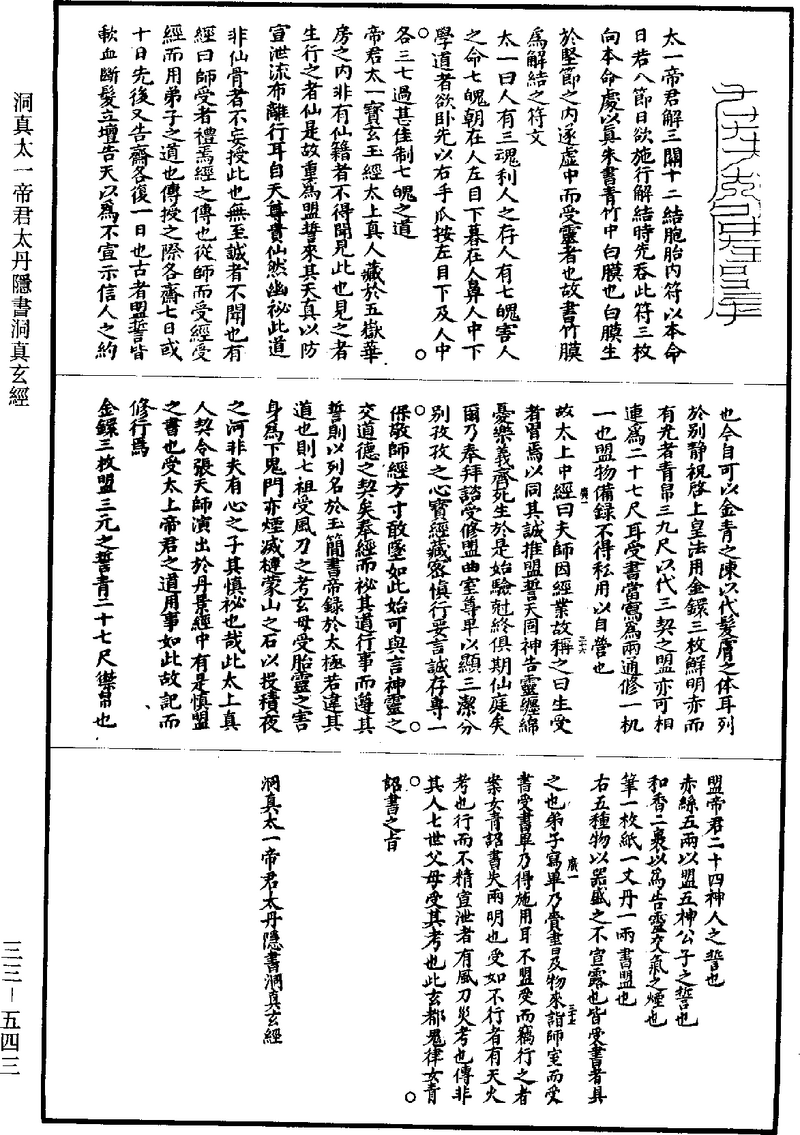 太一帝君解三關十二結胞胎内符以本命
日若八節日欲施行解結時先吞此符三枚
向本命處以真朱書青竹中白膜也白膜生
於堅節之内逐虚中而受靈者也故書竹膜
爲解結之符文
太一曰人有三魂利人之存人有七魄害人
之命七魄朝在人左目下暮在人鼻人中下
學道者欲卧先以右手爪按左目下及人中
各三七過甚佳制七魄之道
帝君太一寶玄玉經太上真人藏於五嶽華
房之内非有仙籍者不得聞見此也見之者
生行之者仙是故重爲盟誓來其天真以防
宣泄流布離行耳自天尊貴仙然幽祕此道
非仙骨者不妄授此也無至誠者不開也有
經曰師受者禮焉經之傳也從師而受經受
經而用弟子之道也傳授之際各齋七日或
十日先後又告齋各復一日也古者盟誓皆
歃血斷髮立壇告天以爲不宣示信人之約
也今自可以金青之陳以代髮膚之体耳列
於别静祝啓上皇法用金鐶三枚鮮明亦而
有光者青帛三九尺以代三契之盟亦可相
連爲二十七尺耳受書當寫爲兩通修一机
一也盟物備録不得私用以自營也
廣一
三十六
故太上中經曰夫師因經業故稱之曰生受
者習焉以同其誠推盟誓天同神告靈纏綿
憂樂義齊死生於是始驗尅終俱期仙庭矣
爾乃奉拜諮受修盟曲室尊卑以顯三潔分
别孜孜之心寶經藏客慎行妄言誠存專一
保敬師經方寸敢墜如此始可與言神靈之
交道德之契矣奉經而祕其道行事而遵其
誓則以列名於玉簡書帝録於太極若違其
道也則七祖受風刀之考玄母受胎靈之害
身爲下鬼門亦煙滅槤蒙山之石以投積夜
之河非夫有心之子其慎祕也哉此太上真
人契令張天師演出於丹景經中有是慎盟
之書也受太上帝君之道用事如此故記而
修行焉
金鐶三枚盟三元之誓青二十七尺禦帛也
盟帝君二十四神人之誓也
赤絲五兩以盟五神公子之誓也
和香二裹以爲告靈交氣之煙也
筆一枚紙一丈丹一兩書盟也
右五種物以器盛之不宣露也皆受書者具
廣一
三十七
之也弟子寫畢乃賫書及物來詣師室而受
書受書畢乃得施用耳不盟受而竊行之者
案女青詔書失兩明也受如不行者有天火
考也行而不精宣泄者有風刀災考也傳非
其人七世父母受其考也此玄都鬼律女青
詔書之旨
洞真太一帝君太丹隱書洞真玄經
洞真太一帝君太丹隱書洞真玄經
三三－五四三